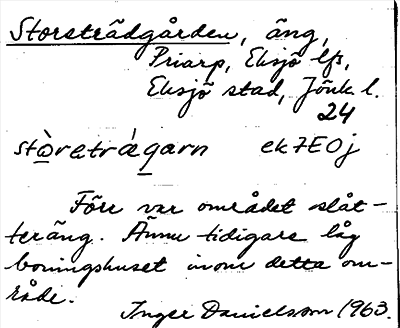 Storsträdgården, äng,
Priarp, Eksjö lfs,
Eksjö stad, Jönk l.
24
stò̱retrág̱arn ek7E0j
Förr var området slåt-
teräng. Ännu tidigare låg
boningshuset inom detta om-
råde.
Inger Danielsson 1963.